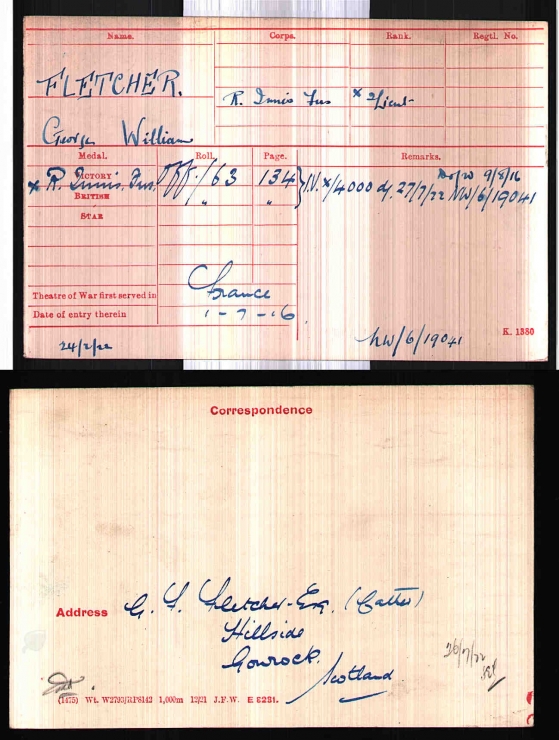 Name. Corps. Rank. Regtl. No.
FLETCHER.
R. Innis Fus x 2/Lieut-
George William
Medal. Roll. Page. Remarks.
VICTORY x R. Innis. Fus. Off/163 134 I.V. x/4000 d/. 27/7/22 NW/6/19041
D of W 9/8/16
BRITISH " "
STAR
Theatre of War first served in France
Date of entry therein 1-7-16.
K. 1380
24/2/22 NW/6/19041
Correspondence
Address G. F. Fletcher-Esq. (Father)
Hillside
Gourock.
Scotland
26/7/22
(1475) Wt. W2793/RP8142 1,000m 12/21 J.F.W. E 8281.